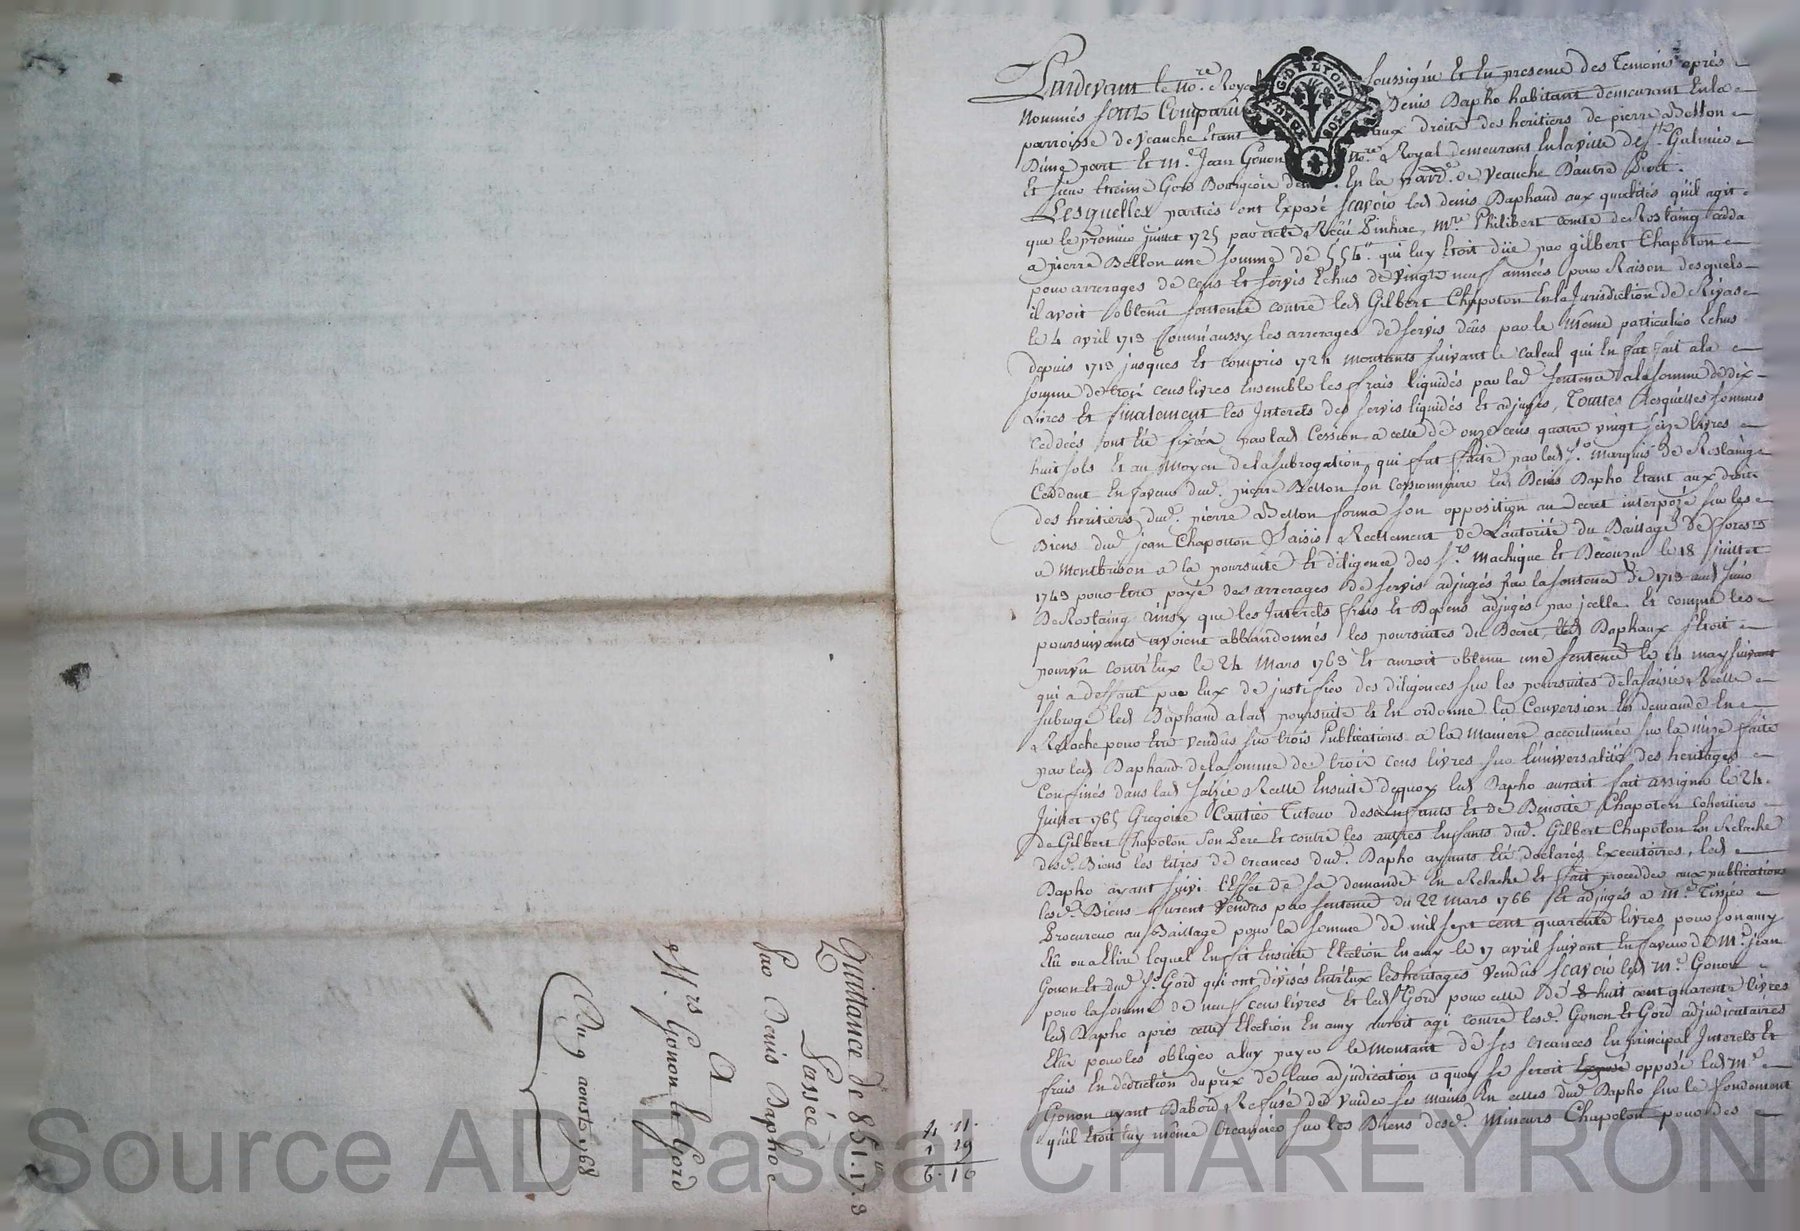 Pardevant le no.re Royal soussigné Et En presence des Temoins après
Nommés sont Comparu Denis Dapho habitant demeurant En la
parroisse de Veauche Etant aux droits des heritiers de pierre Bellon
D'une part Et m.e Jean Gonon no.re Royal demeurant En la ville de s.t Galmier
Et sieur Etienne Gord Bourgeois dem.t En la parr.e de Veauche D'autre Part.
Lesquelles parties ont Exposé scavoir led Denis Daphaud aux qualités qu'il agit
que le premier juillet 1725 par acte Reçu Pinhac, m.re Philibert comte de Rostaing cedda
a pierre Bellon une somme de 554.# qui luy Etoit düe par gilbert Chapoton
pour arrerages de cens Et servis Echus de vingt neuf années pour Raison desquels
il avoit obtenu sentence contre led Gilbert Chapoton En la Jurisdiction de Rivas
le 4 avril 1713 Comm'aussy les arrerages de servis dûs par le même particulier Echus
depuis 1713 jusques Et compris 1724 montants suivant le Calcul qui En fut fait a la
somme de trois cens livres Ensemble les frais liquidés par lad sentence a la somme de dix
Livres Et finalement les Interets des servis liquidés Et adjugés, Toutes Lesquelles sommes
Ceddées ont Eté fixées par lad Cession a celle de onze cens quatre vingt seize livres
huit sols Et au Moyen de la subrogation qui fut faite par led s.r Marquis de Rostaing
Ceddant En faveur dud. pierre Bellon son Cessionnaire led Denis Dapho Etant aux droits
des heritiers dud. pierre Bellon forma son opposition au Decret interposé sur les
Biens dud jean Chapotton saisis Reellement de L'autorité du Baillage de forest
a Montbrison a la poursuite Et diligence des s.rs Machique Et Decouzu le 18 juillet
1743 pour Etre payé des arrerages de servis adjugés par la sentence de 1713 aud sieur
De Rostaing Ainsy que les Interets frais Et Depens adjugés par jcelle. Et comme les
poursuivants avoient abbandonnés les poursuites du Decret, led Daphaux s'etoit
pourvu contr'Eux le 24 Mars 1763 Et auroit obtenu une sentence le 14 may suivant
qui a deffaut par Eux de justifier des diligences sur les poursuites de la saisie Réelle
subroge led Daphaud a lad poursuite Et En ordonne la Conversion En demande En
Relache pour Etre vendûs sur trois Publications a la Maniere accoutumée sur la mize faite
par led Daphaud de la somme de trois cens livres sur l'universalité des heritages
Confinés dans lad saisie Réelle Ensuite dequoy led Dapho auroit fait assigner le 24
Juillet 1765 Gregoire Cautier Tuteur des Enfants Et de Benoite Chapoton coheritiers
de Gilbert Chapoton son Pere Et contre les autres Enfants dud. Gilbert Chapoton En Relache
desd. Biens les titres de creances dud. Dapho ayants Eté declarés Executoires, led
Dapho ayant suivi l'Effet de sa demande En Relache Et fait proceder aux publications
lesd. Biens furent Vendus par sentence du 22 mars 1766 Et adjugés a M.e Tissier
Procureur au Baillage pour la somme de mil sept cent quarente livres pour son amy
Elû ou a Elire lequel En fit Ensuite Election En amy le 17 avril suivant En faveur de M.e jean
Gonon Et dud s.r Gord qui ont divisés Entr'Eux les heritages Vendûs scavoir led M.e Gonon
pour la somme de neuf cens livres Et led Gord pour celle de 8 huit cent quarente livres
led Dapho après cette Election En amy auroit agi contre lesd. Gonon Et Gord adjudicataires
Elûs pour les obliger a luy payer le montant de ses creances En principal Interets Et
frais En deduction du prix de leur adjudication a quoy se seroit opposé led M.e
Gonon ayant Dabord Refusé de vuider ses mains En celles dud. Dapho sur le fondement
qu'il Etoit luy même Creancier sur les Biens desd. Mineurs Chapoton pour des
Quittance de 851.# 17.s 3
Passée
Par Denis Dapho
A
M.rs Gonon Et Gord
Du 9 aoust 1768
4 11.
1 19
6. 10
G. DE LYON
Source AD Pascal CHAREYRON